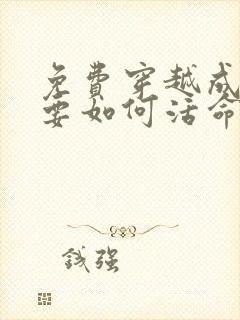 免費穿越成
要如何活命
錢強